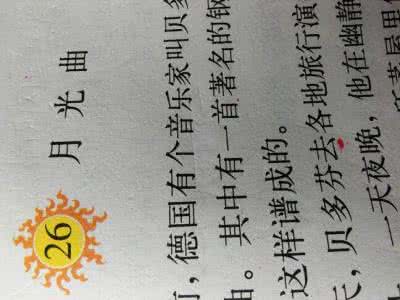 26 月光曲
，德国有个音乐家叫贝多
其中有一首著名的钢
曲。
这样谱成的。
天，贝多芬去各地旅行演
一天夜晚，他在幽静